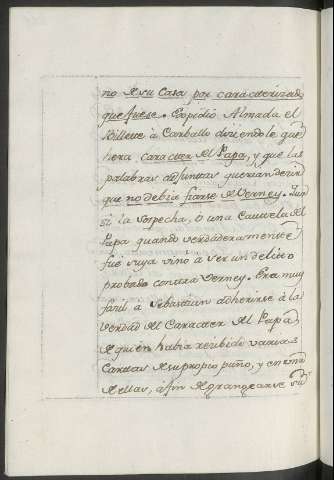 no de su Casa por caracterizado
que fuese. Expidio Almada el
Billete à Carballo diziendole que
hera caracter del Papa, y que las
palabras adjuntas querian dezir
que no debia fiarse de Verney. Aun
si la sospecha, ò una Cautela del
Papa quando verdaderamente
fué suya vino à ser un delito
probado contra Verney. Era muy
facil à Sebastian adherirse à la
verdad del Caracter del Papa
de quien havia recibido varias
Cartas de su propio puño, y en una
de ellas, à fin de grangearse su